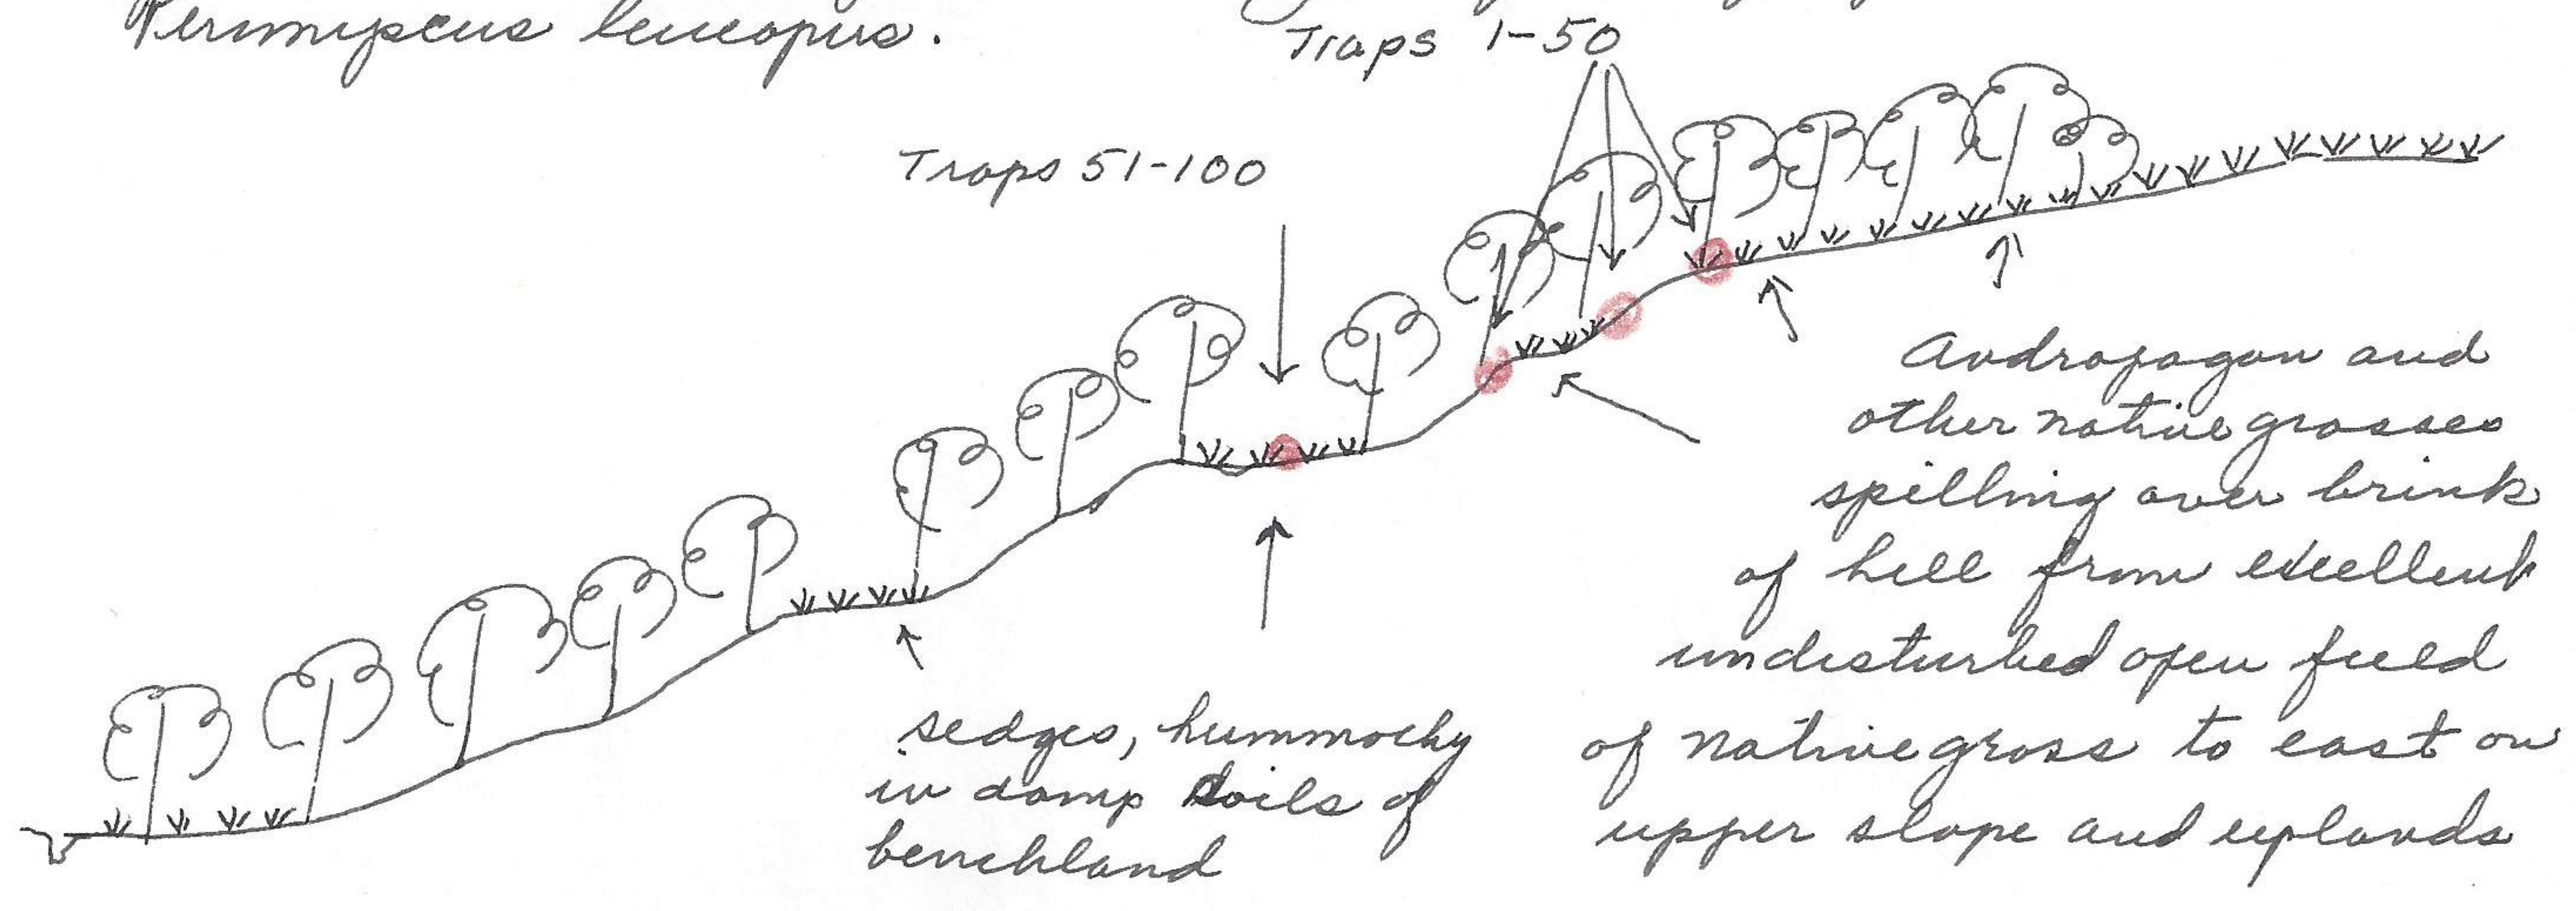 Permyscus leucopus.
Traps 1-50
Traps 51-100
Andropogon and
other native grasses
spilling over brink
of hill from excellent
undisturbed open field
of native grass to east on
upper slope and uplands
sedges, hummocky
in damp soils of
benchland